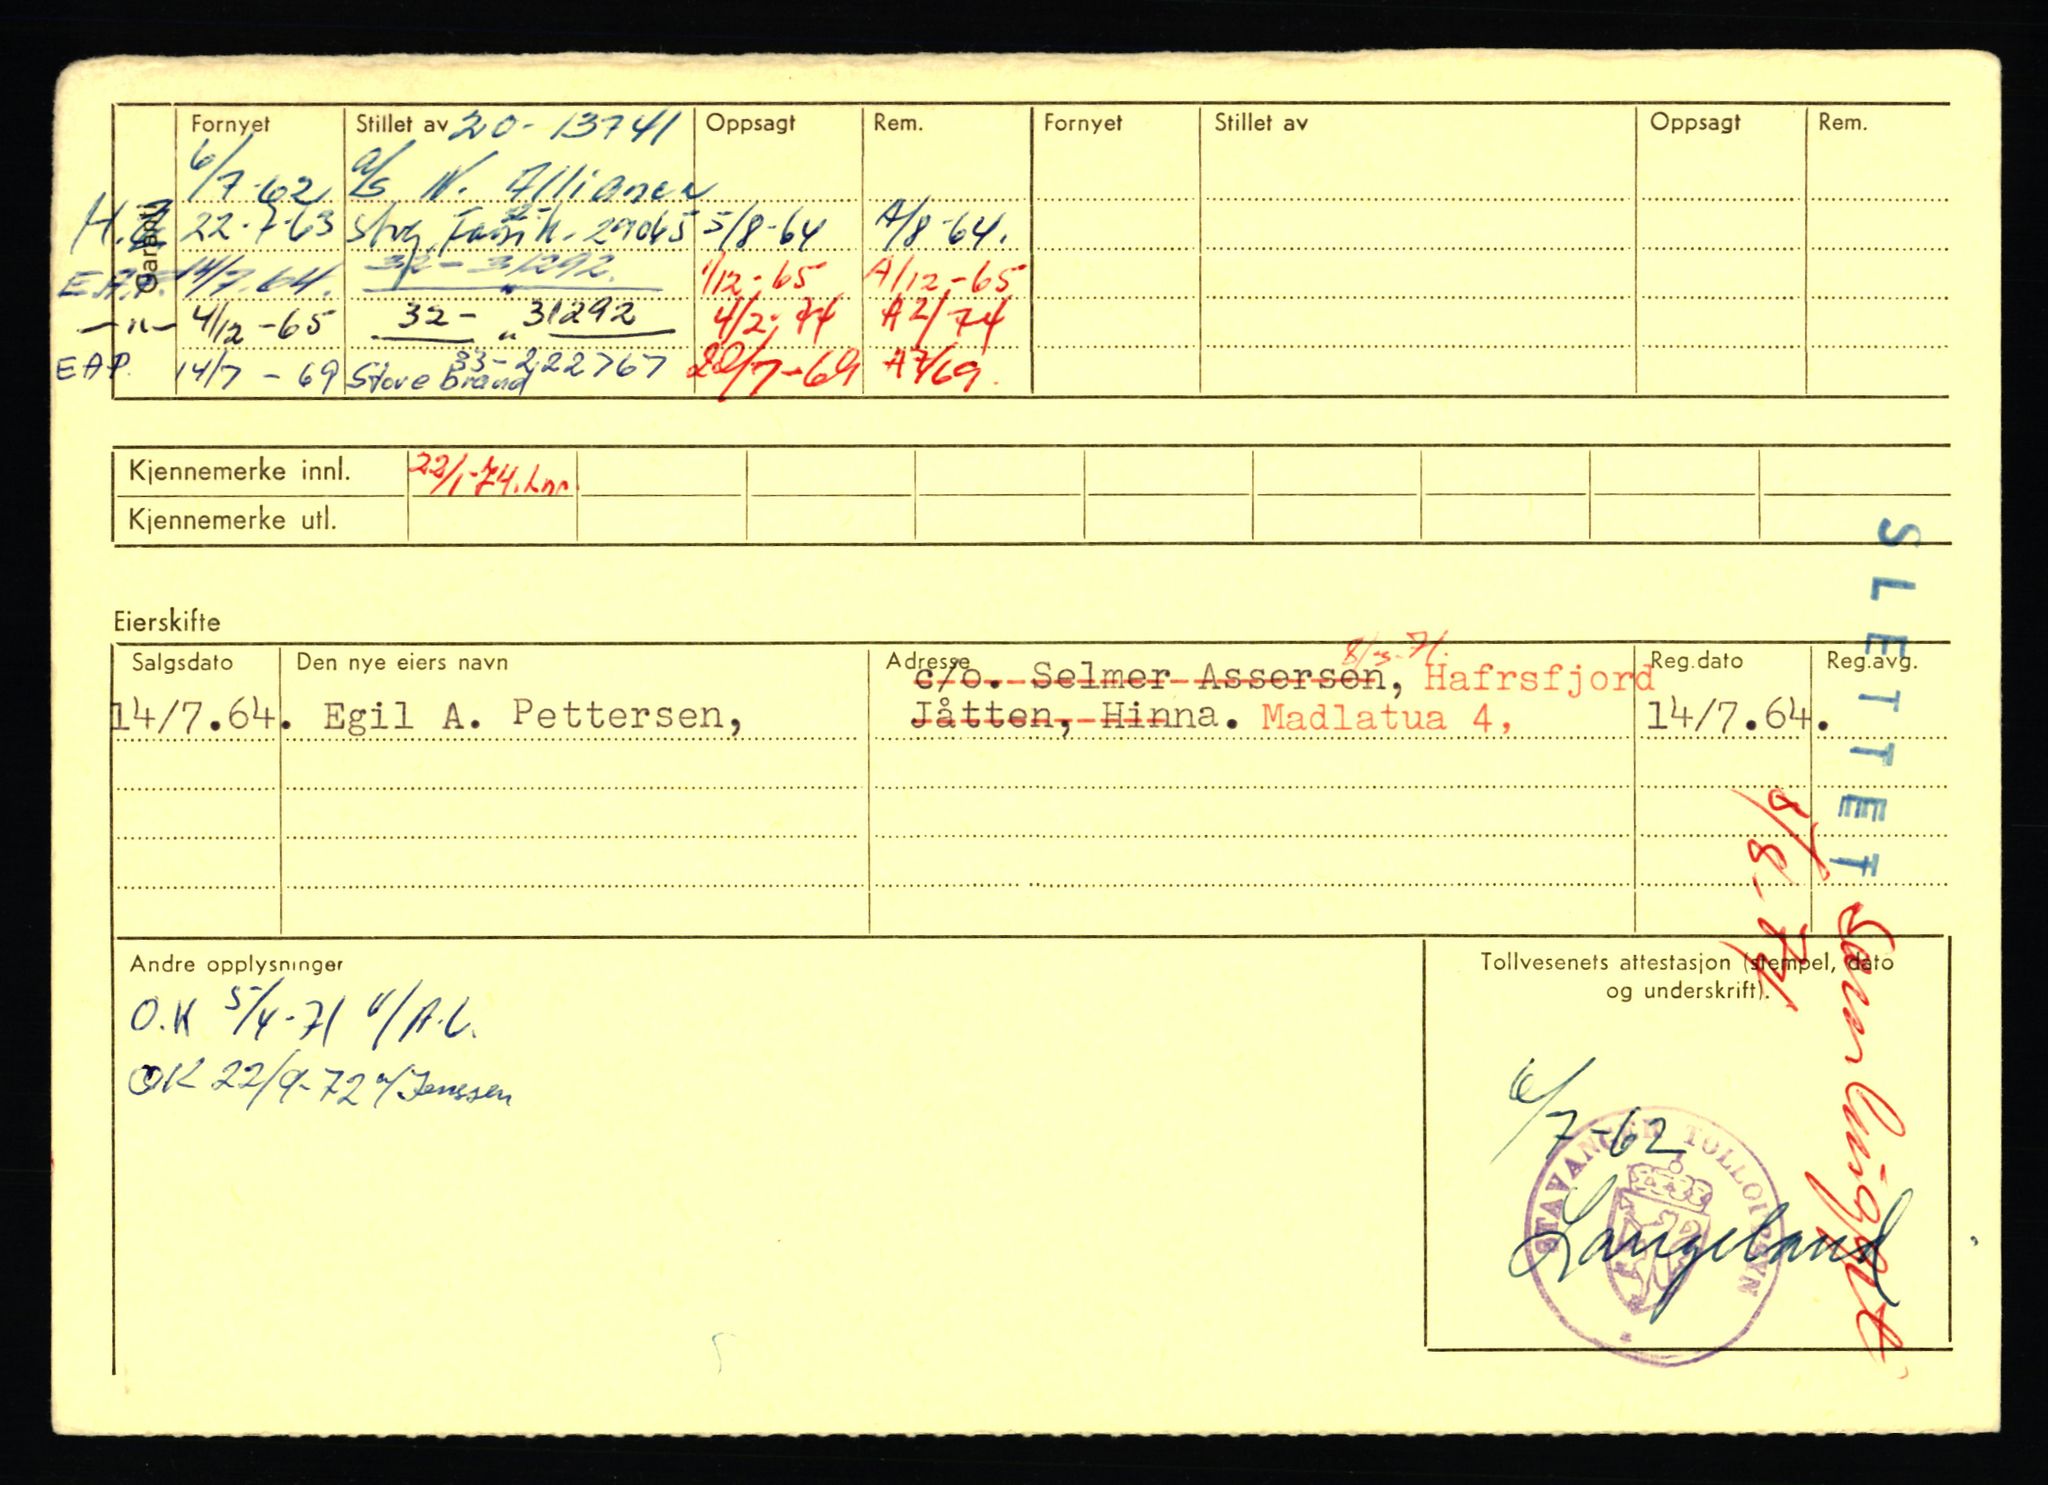 Garanti
Fornyet Stillet av 20-13741 Oppsagt Rem. Fornyet Stillet av Oppsagt Rem.
6/7-62 a/s N. Alliance
22-7-63 29045 5/8-64 A/8-64.
E.A.P. 14/7.64. 32-31292. 1/12-65 A/12-65
-"- 4/12-65 32-31292 4/2-74 A2/74
33-222767
EAP. 14/7-69 Storebrand 20/7-69 A7/69.
Kjennemerke innl. 22/1-74.
Kjennemerke utl.
Eierskifte
8/3-71.
Salgsdato Den nye eiers navn Adresse Reg.dato Reg.avg.
c/o. Selmer Assersen, Hafrsfjord
14/7.64. Egil A. Pettersen, Jåtten, Hinna. Madlatua 4, 14/7.64.
SLETTET
8/8-74
Andre opplysninger
O.K 5/4-71 v/A.L.
OK 22/9-72 v/Jenssen
Tollvesenets attestasjon (stempel, dato
og underskrift).
6/7-62
STAVANGER TOLLOPPSYN
Langeland